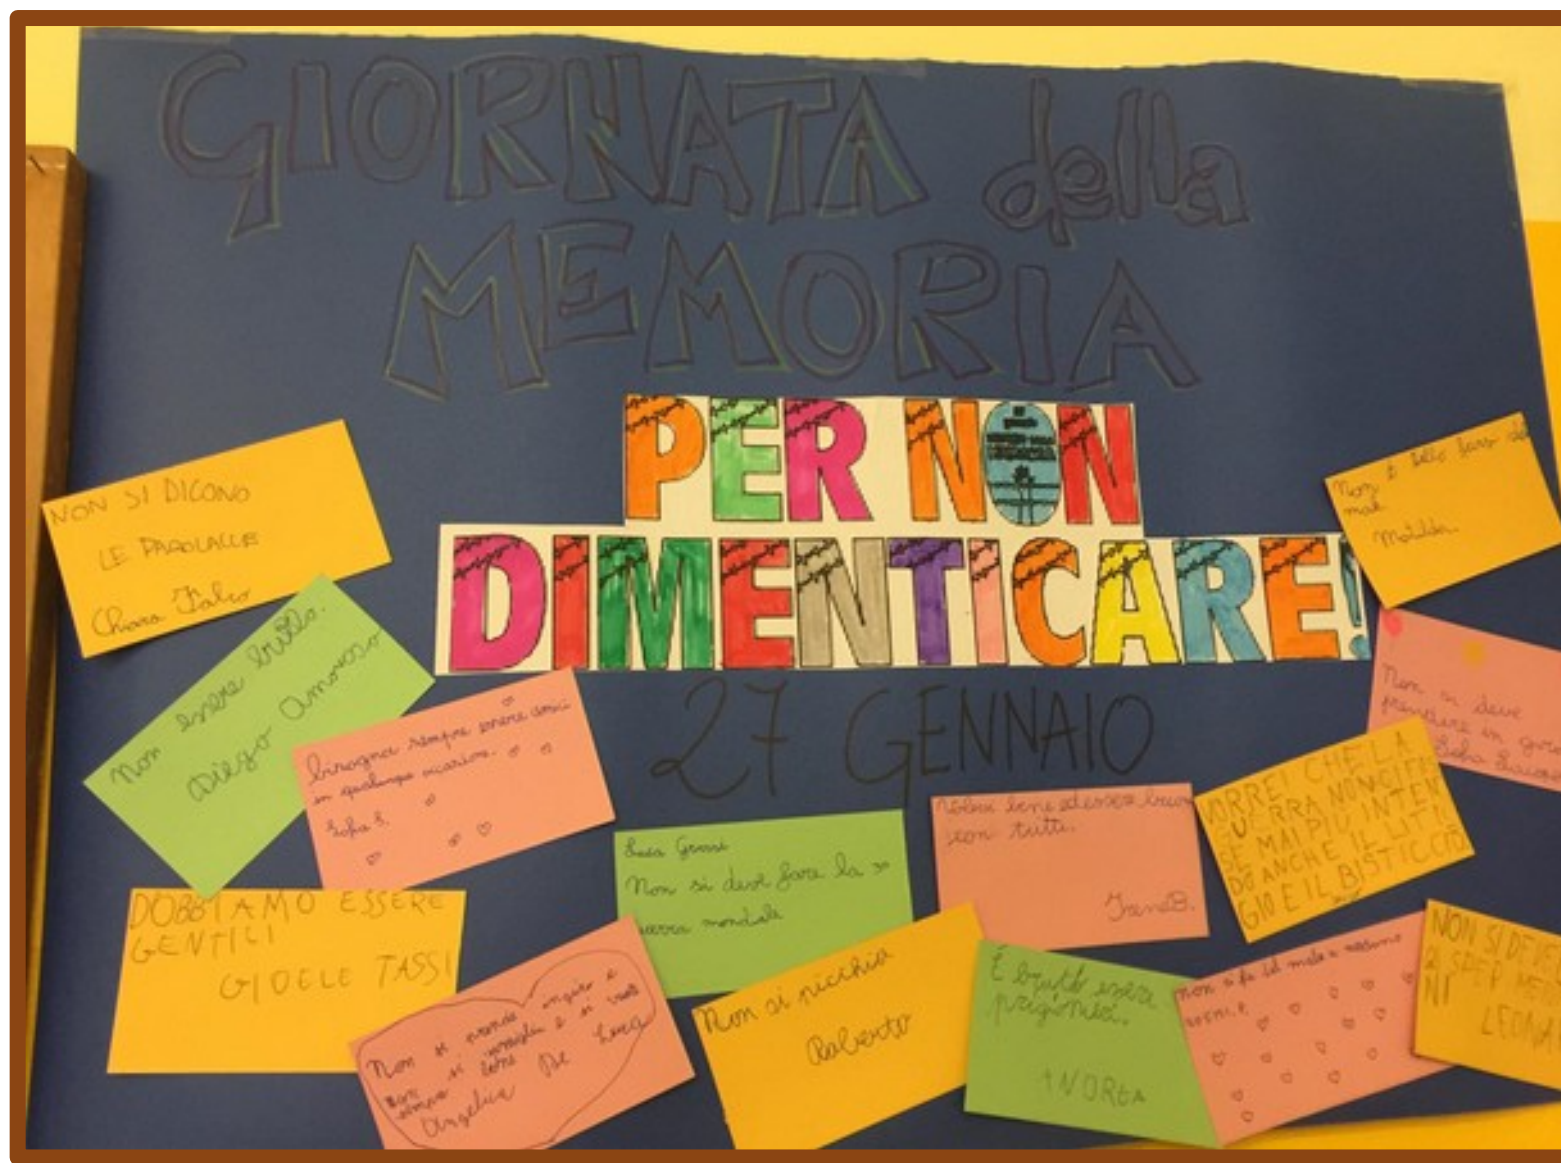 GIORNATA della
MEMORIA
PER NON
DIMENTICARE!
27 GENNAIO
NON SI DICONO
LE PAROLACCE
Chiara
non essere brutto.
Diego Amoroso
bisogna sempre essere amici
in qualunque occasione.
Sofia S.
DOBBIAMO ESSERE
GENTILI
GIOELE TASSI
Non si prende in giro e
non si
sempre bene
Angelica De Luca
Luca Grassi
Non si deve fare la 3°
guerra mondiale
Non si picchia
Roberto
Volersi bene ed essere buoni
con tutti.
Irene B.
È brutto essere
prigionieri.
ANDREA
VORREI CHE LA
GUERRA NON CI FOS
SE MAI PIÙ INTEN
DO ANCHE IL LITI
GIO E IL BISTICCIO
non si fa del male a nessuno
Non è bello farsi del
male
Matilda.
Non si deve
prendere in giro
NON SI DEVE
NI
LEONA